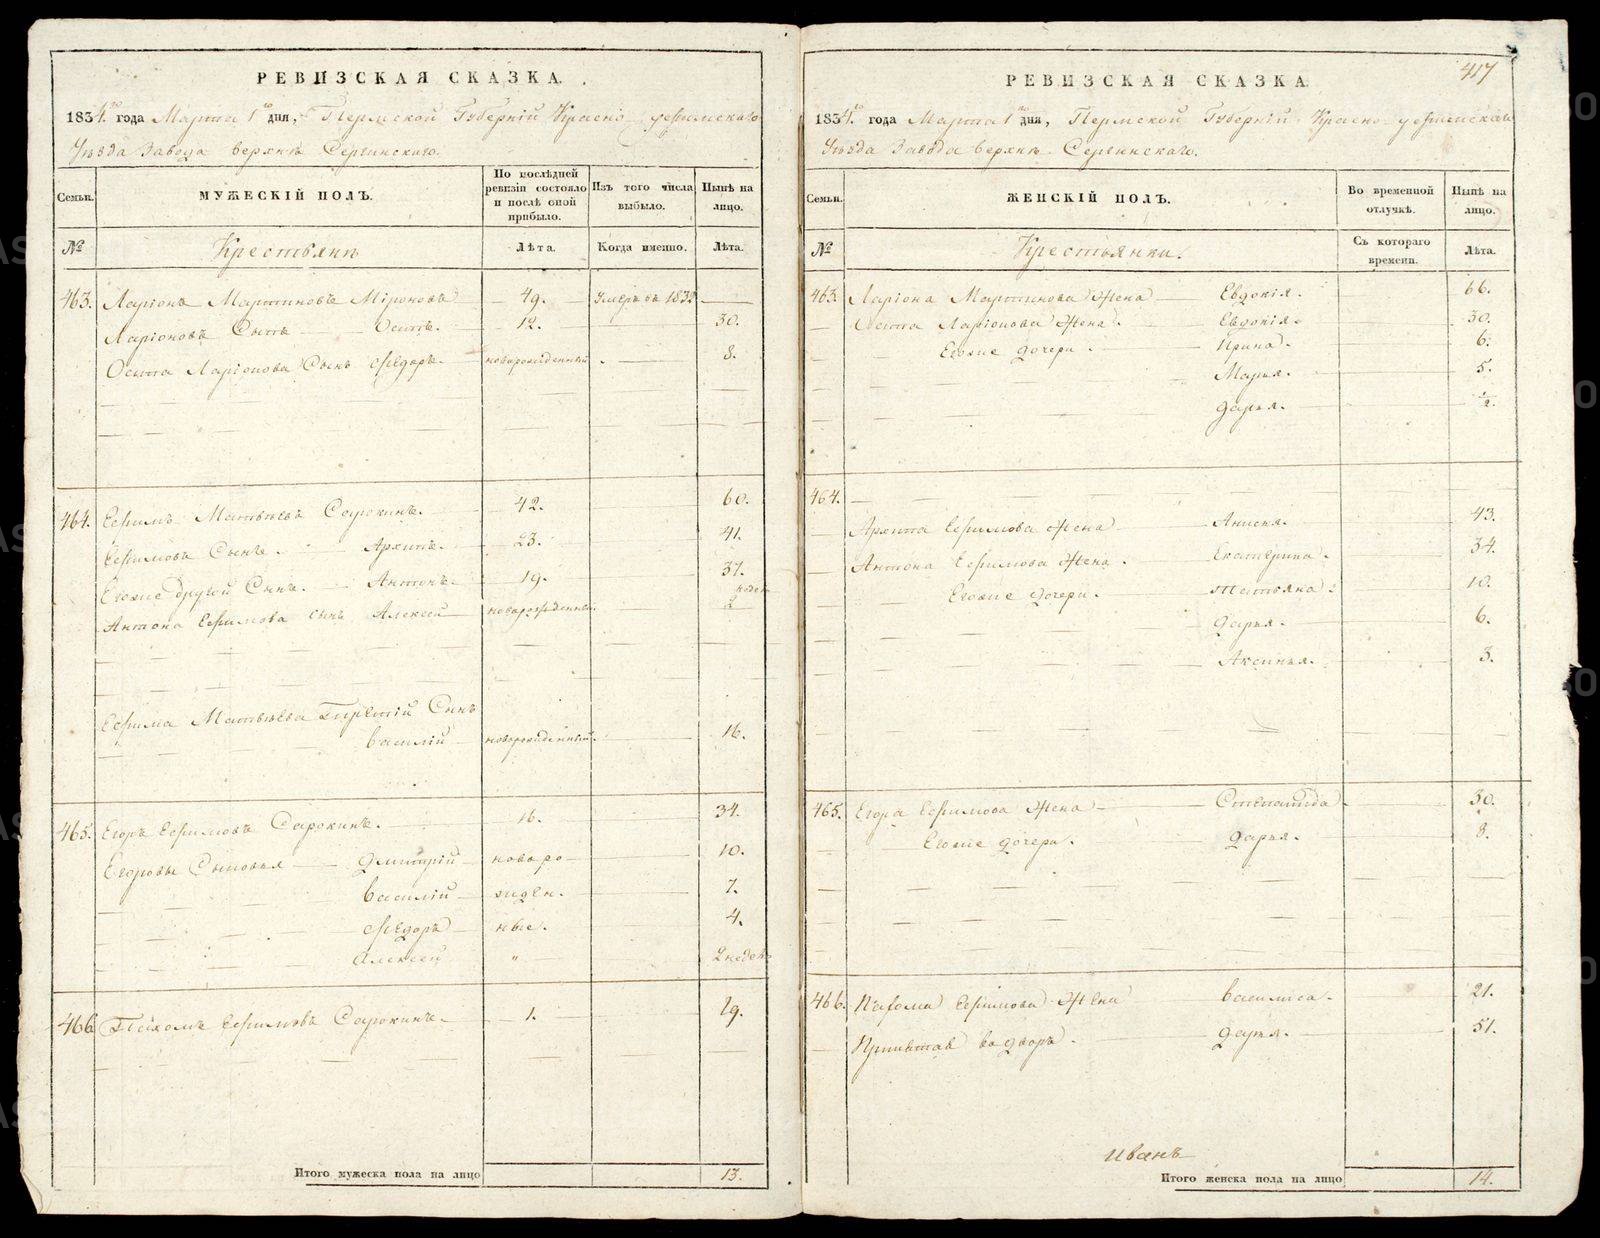 РЕВИЗСКАЯ СКАЗКА.
1834го года Марта 1го дня, Пермской Губернїй Красно уфимскаго
Уѣзда Завода Верхнѣ Сергинскаго.
Семьи.
МУЖЕСКІЙ ПОЛЪ.
По послѣдней ревизіи состояло и послѣ оной прибыло.
Изъ того числа выбыло.
Нынѣ на лицо.
№
Крестьянѣ
Лѣта.
Когда именно.
Лѣта.
463. Ларіонъ Мартиновъ Міроновъ 49. Умеръ въ 1832
Ларіоновъ Сынъ Осипъ. 12. 30.
Осипа Ларіонова Сынъ Ѳедоръ. новорожденный 8.
464. Ефимъ Матвѣевъ Сорокинъ. 42. 60.
Ефимовъ Сынъ. Архипъ. 23. 41.
Егоже другой Сынъ. Антонъ. 19. 37.
Антона Ефимова сынъ Алексей новорожденный 2 недел
Ефима Матвѣева Третїй Сынъ
Василїй новорожденный. 16.
465. Егоръ Ефимовъ Сорокинъ. 16. 34.
Егоровы Сыновья Дмитрїй новоро 10.
Василїй жден. 7.
Ѳедоръ ные. 4.
Алексей " 2 недел
466 Пахомъ Ефимовъ Сорокинъ. 1. 19.
Итого мужеска пола на лицо 13.
417
РЕВИЗСКАЯ СКАЗКА
1834го года Марта 1го дня, Пермской Губернїй Красно уфимскаго
Уѣзда Завода Верхнѣ Сергинскаго.
Семьи.
ЖЕНСКІЙ ПОЛЪ.
Во временной отлучкѣ.
Нынѣ на лицо.
№
Крестьянки.
Съ котораго времени.
Лѣта.
463. Ларіона Мартинова Жена Евдокія. 66.
Осипа Ларіонова Жена. Евдокія. 30.
Егоже дочери. Ирина. 6.
Марья. 5.
Дарья. ½.
464.
Архипа Ефимова Жена Анисья. 43.
Антона Ефимова Жена. Екатерина. 34.
Егоже дочери. Татьяна. 10.
Дарья. 6.
Аксинья. 3.
465. Егора Ефимова Жена Степанида. 30.
Егоже дочери. Дарья. 8.
466. Пахома Ефимова Жена Василиса. 21.
во дворѣ. Дарья. 51.
Иванъ
Итого женска пола на лицо 14.